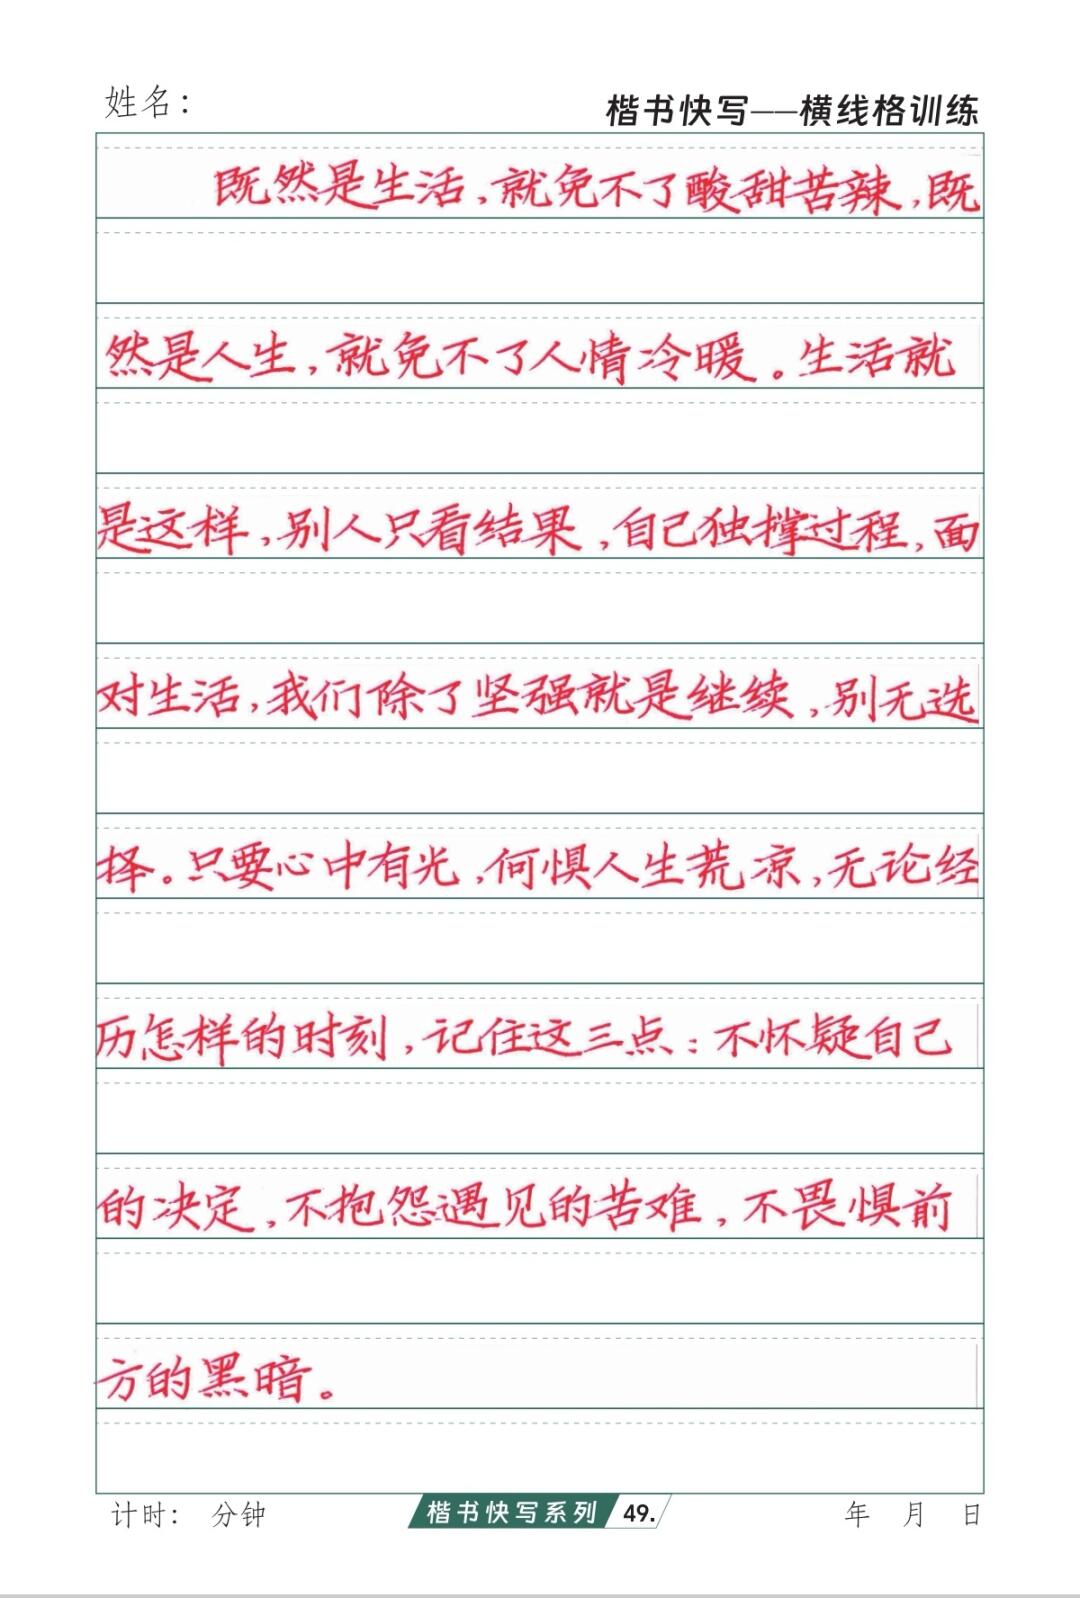 姓名：
楷书快写——横线格训练
既然是生活，就免不了酸甜苦辣，既
然是人生，就免不了人情冷暖。生活就
是这样，别人只看结果，自己独撑过程，面
对生活，我们除了坚强就是继续，别无选
择。只要心中有光，何惧人生荒凉，无论经
历怎样的时刻，记住这三点：不怀疑自己
的决定，不抱怨遇见的苦难，不畏惧前
方的黑暗。
计时： 分钟
楷书快写系列 49.
年 月 日